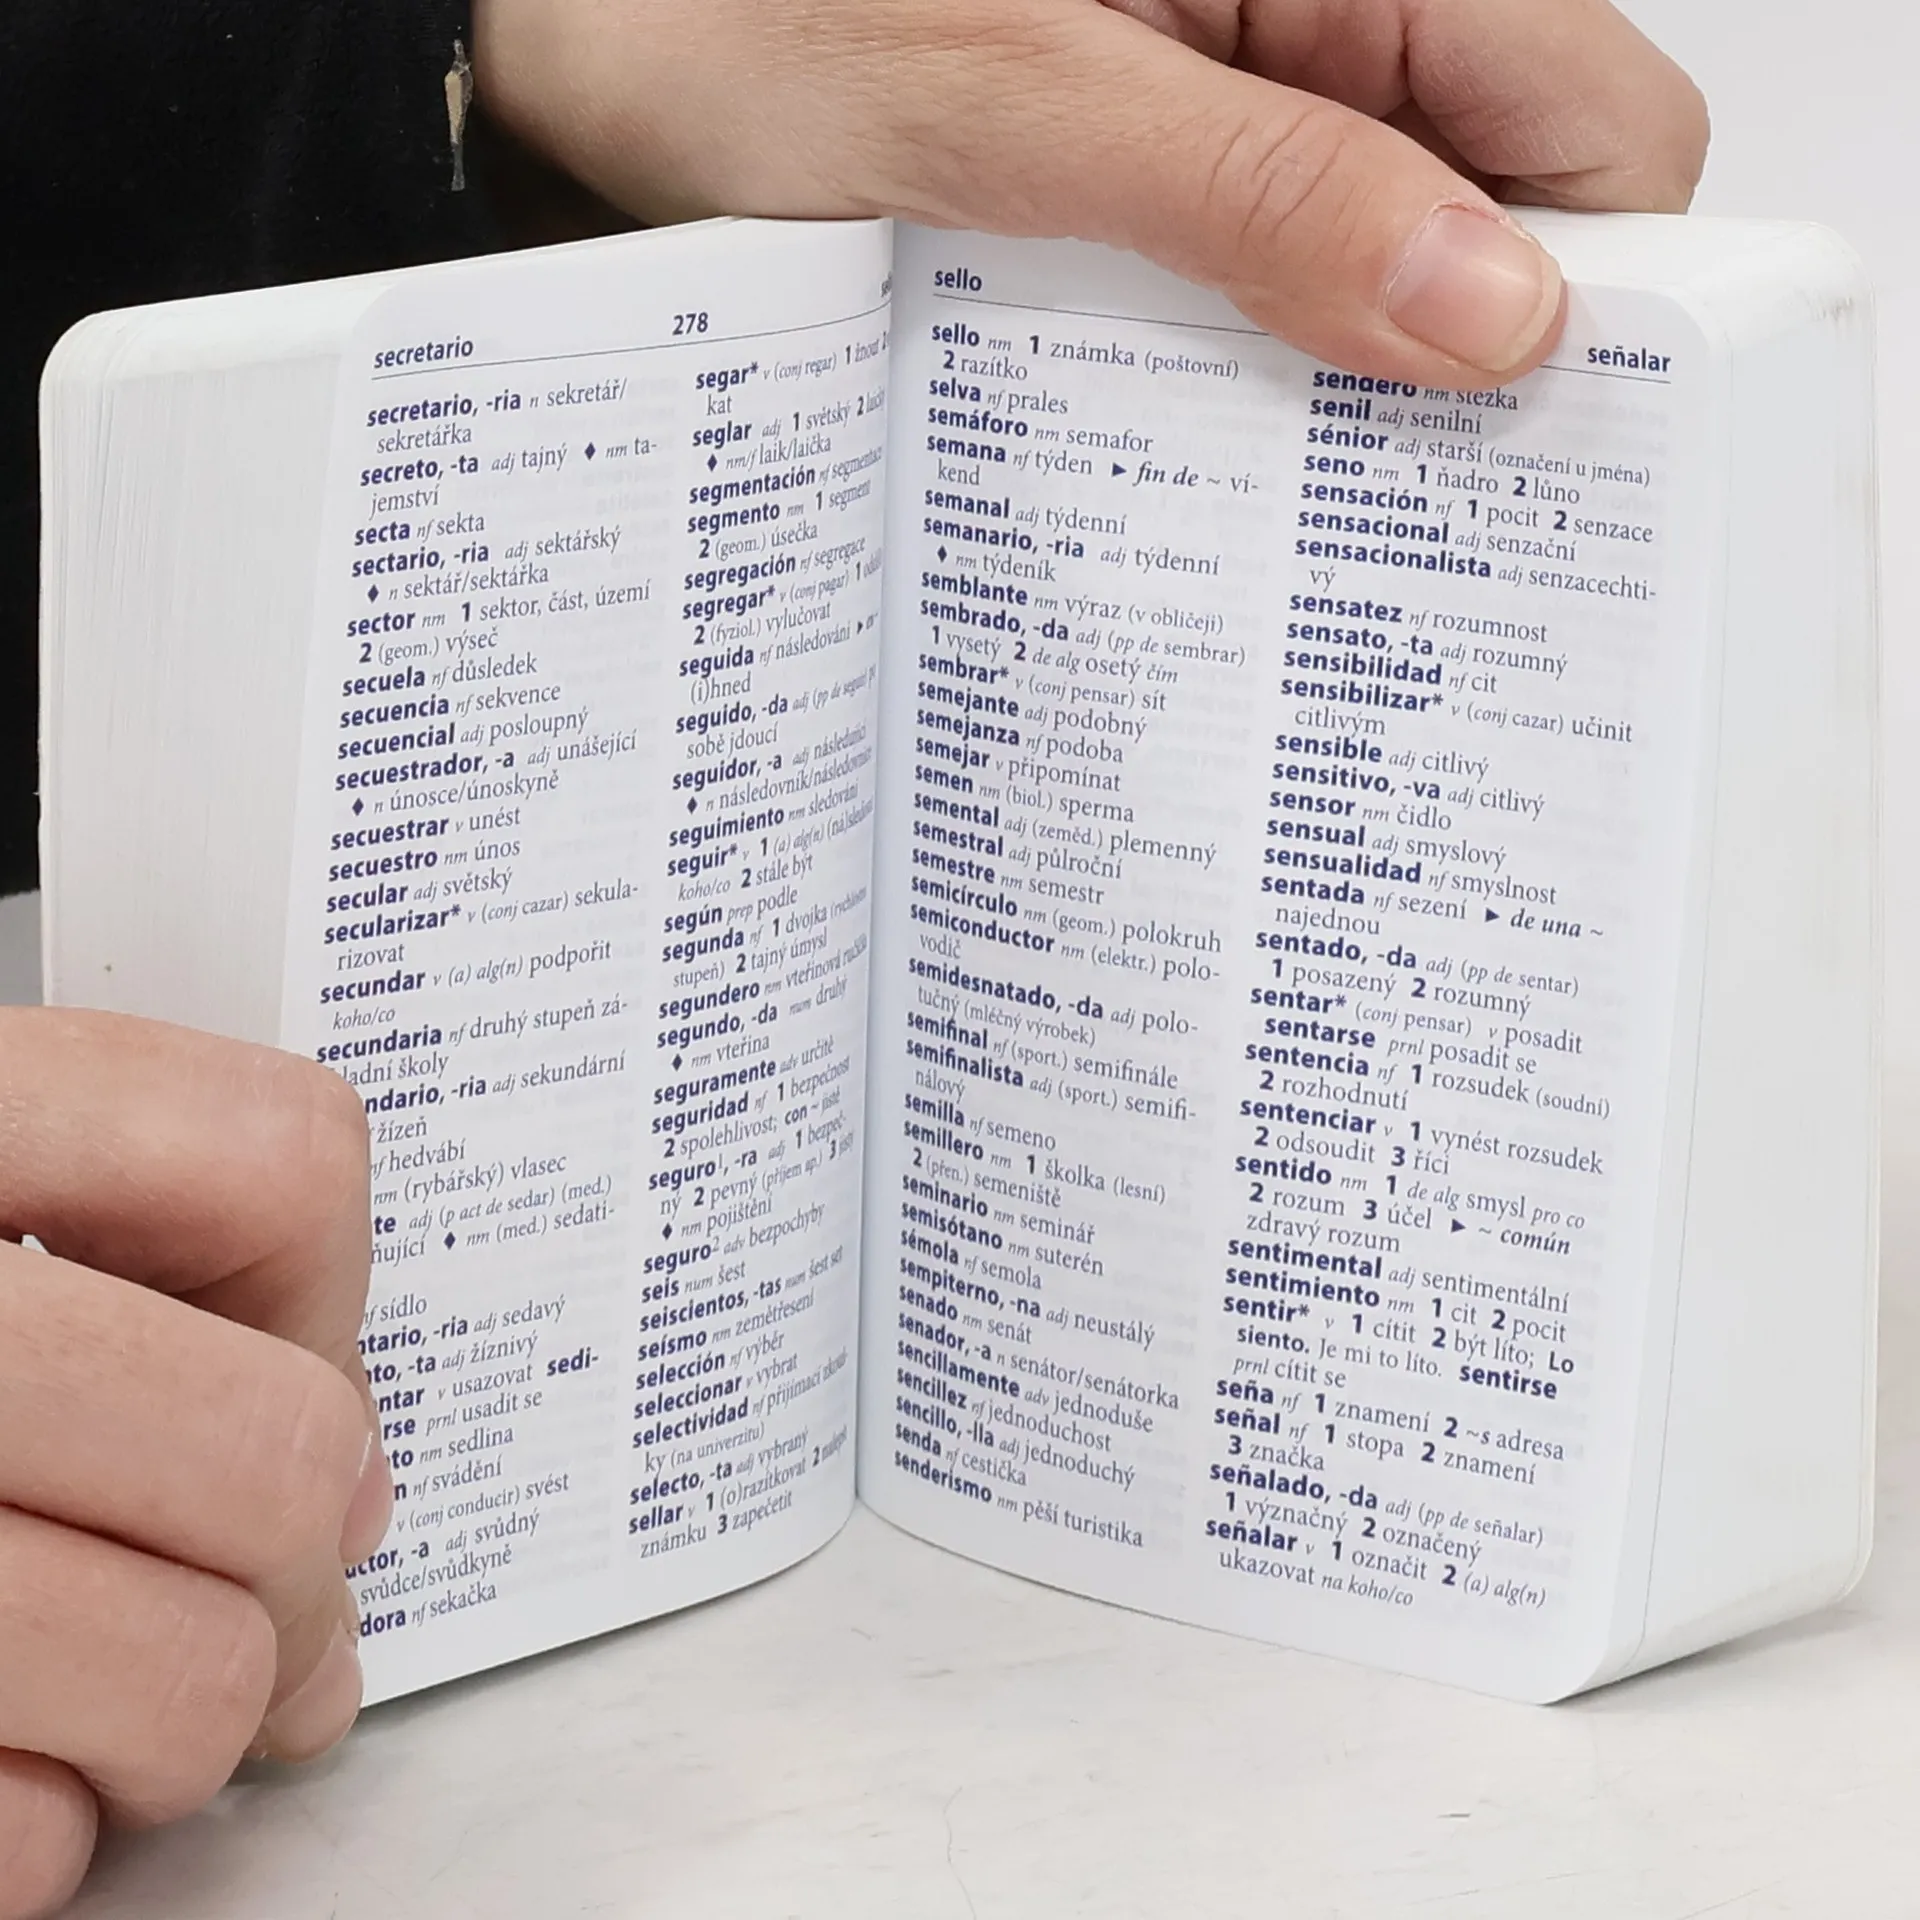 secretario
278
secretario, -ria n sekretář/
sekretářka
secreto, -ta adj tajný ♦ nm ta-
jemství
secta nf sekta
sectario, -ria adj sektářský
♦ n sektář/sektářka
sector nm 1 sektor, část, území
2 (geom.) výseč
secuela nf důsledek
secuencia nf sekvence
secuencial adj posloupný
secuestrador, -a adj unášející
♦ n únosce/únoskyně
secuestrar v unést
secuestro nm únos
secular adj světský
secularizar* v (conj cazar) sekula-
rizovat
secundar v (a) alg(n) podpořit
koho/co
secundaria nf druhý stupeň zá-
ladní školy
ndario, -ria adj sekundární
žízeň
nf hedvábí
nm (rybářský) vlasec
te adj (p act de sedar) (med.)
ňující ♦ nm (med.) sedati-
nf sídlo
ntario, -ria adj sedavý
nto, -ta adj žíznivý
ntar v usazovat sedi-
rse prnl usadit se
to nm sedlina
n nf svádění
v (conj conducir) svést
uctor, -a adj svůdný
svůdce/svůdkyně
dora nf sekačka
segar* v (conj regar) 1 žnout
kat
seglar adj 1 světský 2
♦ nm/f laik/laička
segmentación nf segmentace
segmento nm 1 segment
2 (geom.) úsečka
segregación nf segregace
segregar* v (conj pagar) 1
2 (fyziol.) vylučovat
seguida nf následování ▶
(i)hned
seguido, -da adj (pp de seguir)
sobě jdoucí
seguidor, -a adj následující
♦ n následovník/následovnice
seguimiento nm sledování
seguir* v 1 (a) alg(n) (ná)sledovat
koho/co 2 stále být
según prep podle
segunda nf 1 dvojka (rychlostní
stupeň) 2 tajný úmysl
segundero nm vteřinová ručička
segundo, -da num druhý
♦ nm vteřina
seguramente adv určitě
seguridad nf 1 bezpečnost
2 spolehlivost; con ~ jistě
seguro¹, -ra adj 1 bezpeč-
ný 2 pevný (příjem ap.) 3 jistý
♦ nm pojištění
seguro² adv bezpochyby
seis num šest
seiscientos, -tas num šest set
seísmo nm zemětřesení
selección nf výběr
seleccionar v vybrat
selectividad nf přijímací zkouš-
ky (na univerzitu)
selecto, -ta adj vybraný
sellar v 1 (o)razítkovat 2 nalepit
známku 3 zapečetit
sello
señalar
sello nm 1 známka (poštovní)
2 razítko
selva nf prales
semáforo nm semafor
semana nf týden ▶ fin de ~ ví-
kend
semanal adj týdenní
semanario, -ria adj týdenní
♦ nm týdeník
semblante nm výraz (v obličeji)
sembrado, -da adj (pp de sembrar)
1 vysetý 2 de alg osetý čím
sembrar* v (conj pensar) sít
semejante adj podobný
semejanza nf podoba
semejar v připomínat
semen nm (biol.) sperma
semental adj (zeměd.) plemenný
semestral adj půlroční
semestre nm semestr
semicírculo nm (geom.) polokruh
semiconductor nm (elektr.) polo-
vodič
semidesnatado, -da adj polo-
tučný (mléčný výrobek)
semifinal nf (sport.) semifinále
semifinalista adj (sport.) semifi-
nálový
semilla nf semeno
semillero nm 1 školka (lesní)
2 (přen.) semeniště
seminario nm seminář
semisótano nm suterén
sémola nf semola
sempiterno, -na adj neustálý
senado nm senát
senador, -a n senátor/senátorka
sencillamente adv jednoduše
sencillez nf jednoduchost
sencillo, -lla adj jednoduchý
senda nf cestička
senderismo nm pěší turistika
sendero nm stezka
senil adj senilní
sénior adj starší (označení u jména)
seno nm 1 ňadro 2 lůno
sensación nf 1 pocit 2 senzace
sensacional adj senzační
sensacionalista adj senzacechti-
vý
sensatez nf rozumnost
sensato, -ta adj rozumný
sensibilidad nf cit
sensibilizar* v (conj cazar) učinit
citlivým
sensible adj citlivý
sensitivo, -va adj citlivý
sensor nm čidlo
sensual adj smyslový
sensualidad nf smyslnost
sentada nf sezení ▶ de una ~
najednou
sentado, -da adj (pp de sentar)
1 posazený 2 rozumný
sentar* (conj pensar) v posadit
sentarse prnl posadit se
sentencia nf 1 rozsudek (soudní)
2 rozhodnutí
sentenciar v 1 vynést rozsudek
2 odsoudit 3 říci
sentido nm 1 de alg smysl pro co
2 rozum 3 účel ▶ ~ común
zdravý rozum
sentimental adj sentimentální
sentimiento nm 1 cit 2 pocit
sentir* v 1 cítit 2 být líto; Lo
siento. Je mi to líto. sentirse
prnl cítit se
seña nf 1 znamení 2 ~s adresa
señal nf 1 stopa 2 znamení
3 značka
señalado, -da adj (pp de señalar)
1 význačný 2 označený
señalar v 1 označit 2 (a) alg(n)
ukazovat na koho/co